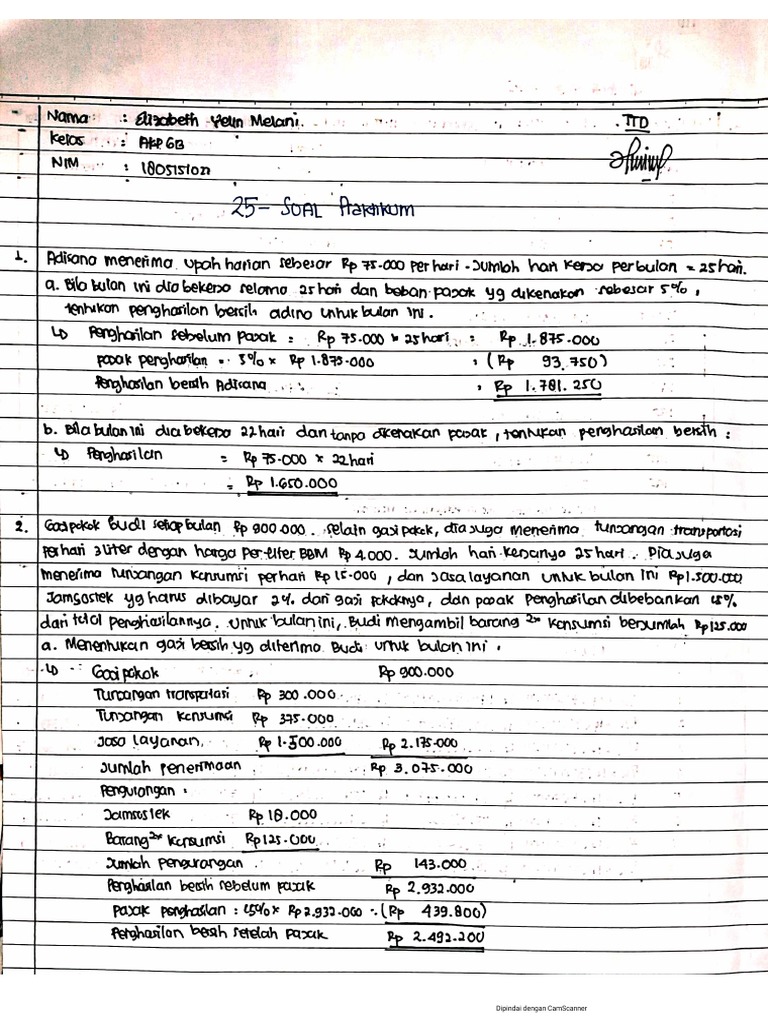 Nama : Elizabeth Yelin Melani. TTD
Kelas : AKP 6B
NIM : 180515102
25 - SOAL Praktikum
1. Adisana menerima upah harian sebesar Rp 75.000 per hari. Jumlah hari kerja per bulan = 25 hari.
a. Bila bulan ini dia bekerja selama 25 hari dan beban pajak yg dikenakan sebesar 5%,
tentukan penghasilan bersih adino untuk bulan ini.
↳ Penghasilan sebelum pajak = Rp 75.000 x 25 hari : Rp 1.875.000
pajak penghasilan = 5% x Rp 1.875.000 : (Rp 93.750)
Penghasilan bersih Adisana : Rp 1.781.250
b. Bila bulan ini dia bekerja 22 hari dan tanpa dikenakan pajak, tentukan penghasilan bersih :
↳ Penghasilan = Rp 75.000 x 22 hari
= Rp 1.650.000
2. Gaji pokok Budi setiap bulan Rp 900.000. selain gaji pokok, dia juga menerima tunjangan transportasi
perhari 3 liter dengan harga per-liter BBM Rp 4.000. Jumlah hari kerjanya 25 hari. Dia juga
menerima tunjangan konsumsi perhari Rp 15.000, dan jasa layanan untuk bulan ini Rp 1.500.000
Jamsostek yg harus dibayar 2% dari gaji pokoknya, dan pajak penghasilan dibebankan 15%
dari total penghasilannya. Untuk bulan ini, Budi mengambil barang 2x konsumsi berjumlah Rp 125.000
a. Menentukan gaji bersih yg diterima Budi untuk bulan ini.
↳ Gaji pokok Rp 900.000
Tunjangan transportasi Rp 300.000
Tunjangan konsumsi Rp 375.000
Jasa layanan Rp 1.500.000 Rp 2.175.000
Jumlah penerimaan Rp 3.075.000
Pengurangan :
Jamsostek Rp 18.000
Barang 2x konsumsi Rp 125.000
Jumlah pengurangan Rp 143.000
Penghasilan bersih sebelum pajak Rp 2.932.000
Pajak penghasilan : 15% x Rp 2.932.000 : (Rp 439.800)
Penghasilan bersih setelah pajak Rp 2.492.200
Dipindai dengan CamScanner